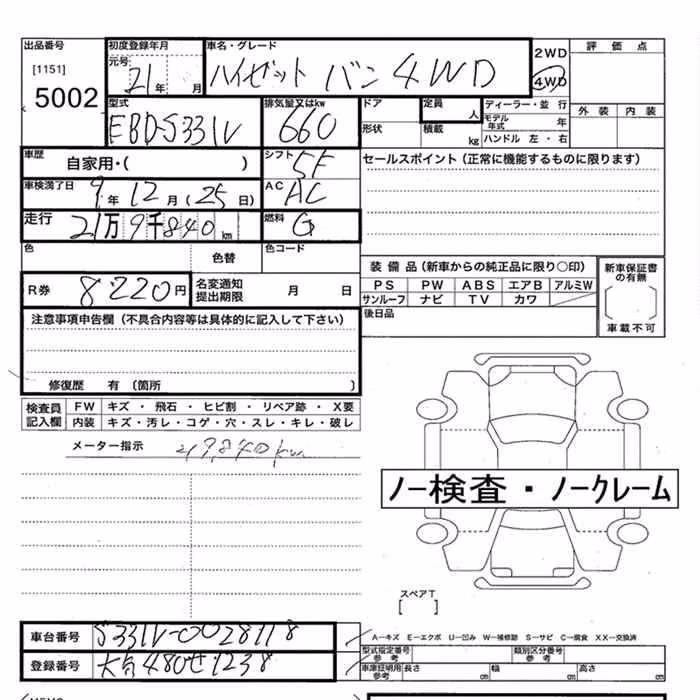 出品番号
[1151]
5002
初度登録年月
元号 21年 月
車名・グレード
ハイゼット バン 4WD
2WD
4WD
評価点
外装 内装
型式
EBD-S331V
排気量又はkw
660
ドア
形状
定員
人
積載
kg
ディーラー・並行
モデル年式 年
ハンドル 左・右
車歴
自家用・( )
シフト
5F
セールスポイント (正常に機能するものに限ります)
車検満了日
9年 12月 (25日)
AC
AC
走行
21万9千840km
燃料
G
色
色替
色コード
R券
8220円
名変通知
提出期限
月 日
装備品 (新車からの純正品に限り○印)
PS PW ABS エアB アルミW
サンルーフ ナビ TV カワ
後日品
新車保証書
の有無
車載不可
注意事項申告欄 (不具合内容等は具体的に記入して下さい)
修復歴 有 (箇所 )
検査員
記入欄
FW キズ・飛石・ヒビ割・リペア跡・X要
内装 キズ・汚レ・コゲ・穴・スレ・キレ・破レ
メーター指示 219,840km
ノー検査・ノークレーム
スペアT
[ ]
車台番号
S331V-0028118
登録番号
A-キズ E-エクボ U-凹み W-補修跡 S-サビ C-腐食 XX-交換済
型式指定番号
参考
類別区分番号
参考
車庫証明用
参考
長さ cm 幅 cm 高さ cm
MEMO